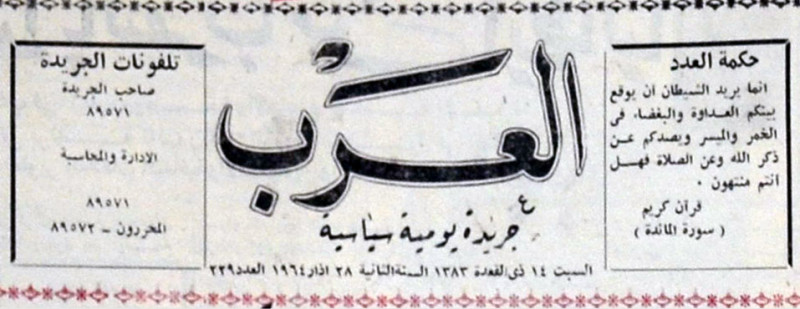 حكمة العدد
انما يريد الشيطان أن يوقع
بينكم العداوة والبغضاء فى
الخمر والميسر ويصدكم عن
ذكر الله وعن الصلاة فهل
انتم منتهون ٠
قرآن كريم
( سورة المائدة )
العرب
جريدة يومية سياسية
السبت ١٤ ذى القعدة ١٣٨٣ السنة الثانية ٢٨ اذار ١٩٦٤ العدد ٢٢٩
تلفونات الجريدة
صاحب الجريدة
٨٩٥٧١
الادارة والمحاسبة
٨٩٥٧١
المحررون - ٨٩٥٧٢